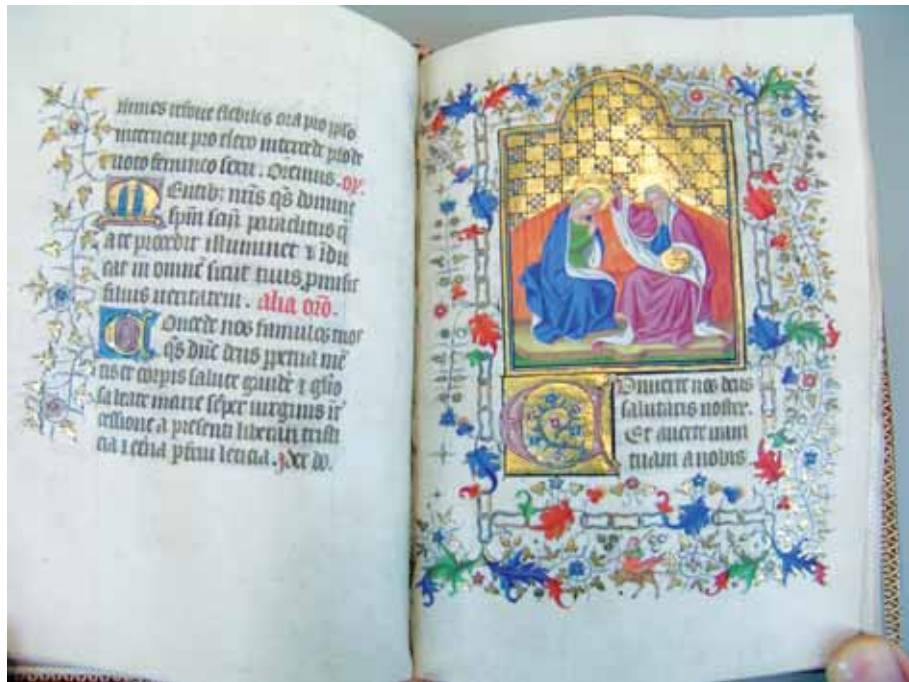 intercede pro de
uoto femineo sexu. Oremus. or.
Mentib; nr̄is qs̄ domine
spm̄ scm̄ paraclitus q
a te procedit illuminet ⁊ idu
cat in omnē sicut tuus promisit
filius ueritatem. alia orō.
Concede nos famulos tuos
qs̄ dn̄e deus ppetua mē
tis et corpis salute gaudē ⁊ gl̄io
sa beate marie sēper uirginis īt
cessione a presenti liberari tristi
cia ⁊ et̄na pfrui leticia. Per do.
Conuerte nos deus
salutaris noster.
Et auerte iram
tuam a nobis